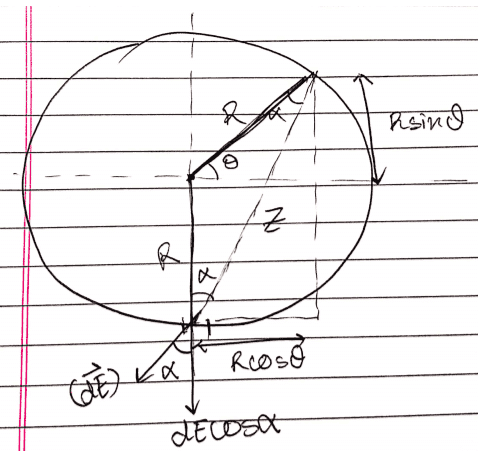 R
α
Rsinθ
θ
Z
R
α
Rcosθ
(dE)
α
dEcosα